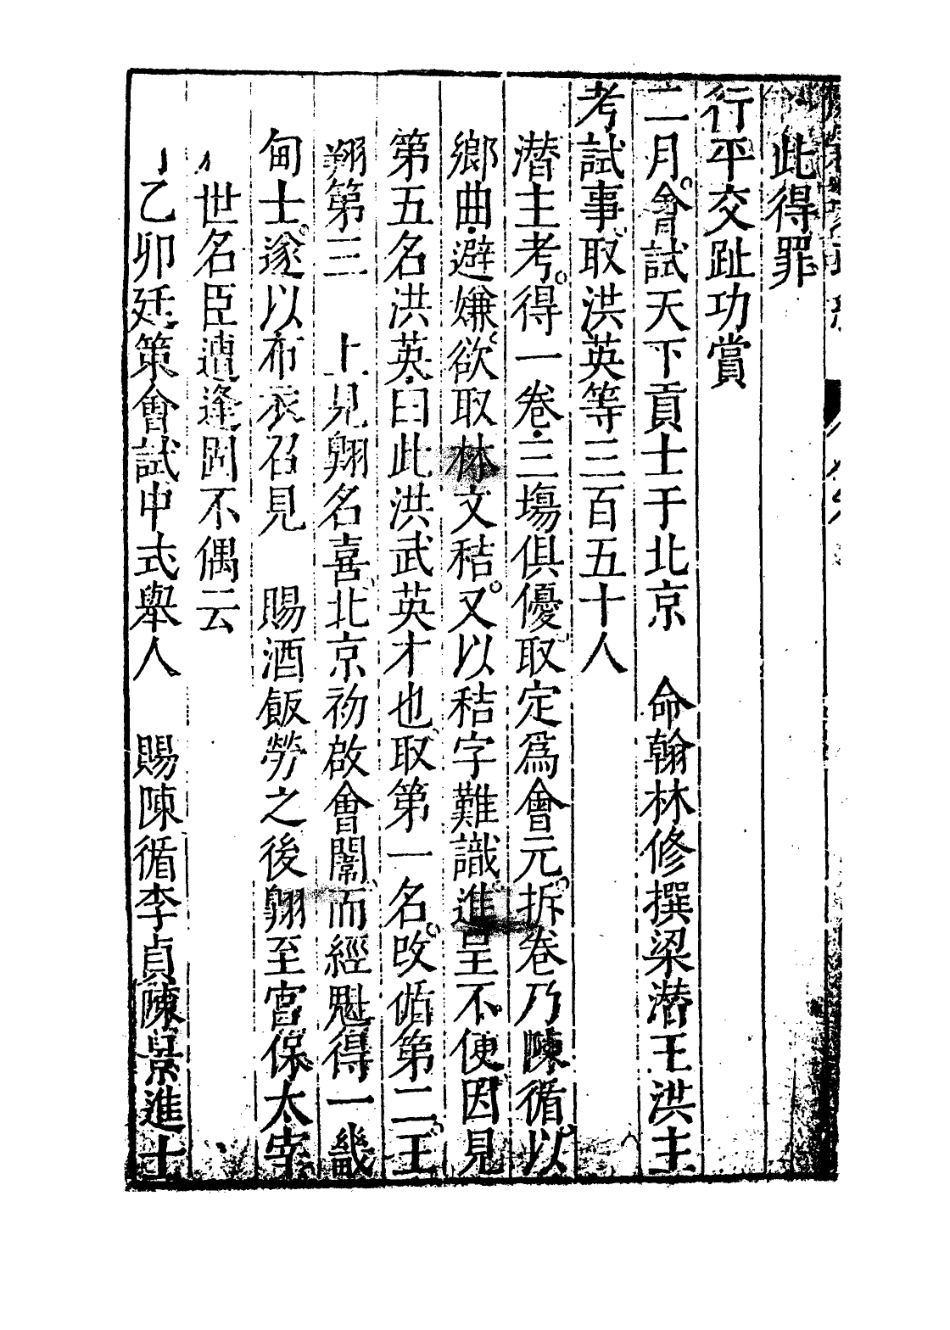 此得罪
行平交趾功賞
二月會試天下貢士于北京　命翰林修撰梁潜王洪主
考試事取洪英等三百五十人
潜主考得一卷三塲俱優取定爲會元拆卷乃陳循以
鄉曲避嫌欲取林文秸又以秸字難識進呈不便因見
第五名洪英曰此洪武英才也取第一名改循第二王
翱第三　上見翱名喜北京初啟會闈而經魁得一畿
甸士遂以布衣召見　賜酒飯勞之後翱至宮保太宰
世名臣遭逢固不偶云
乙卯廷策會試中式舉人　賜陳循李貞陳景進士